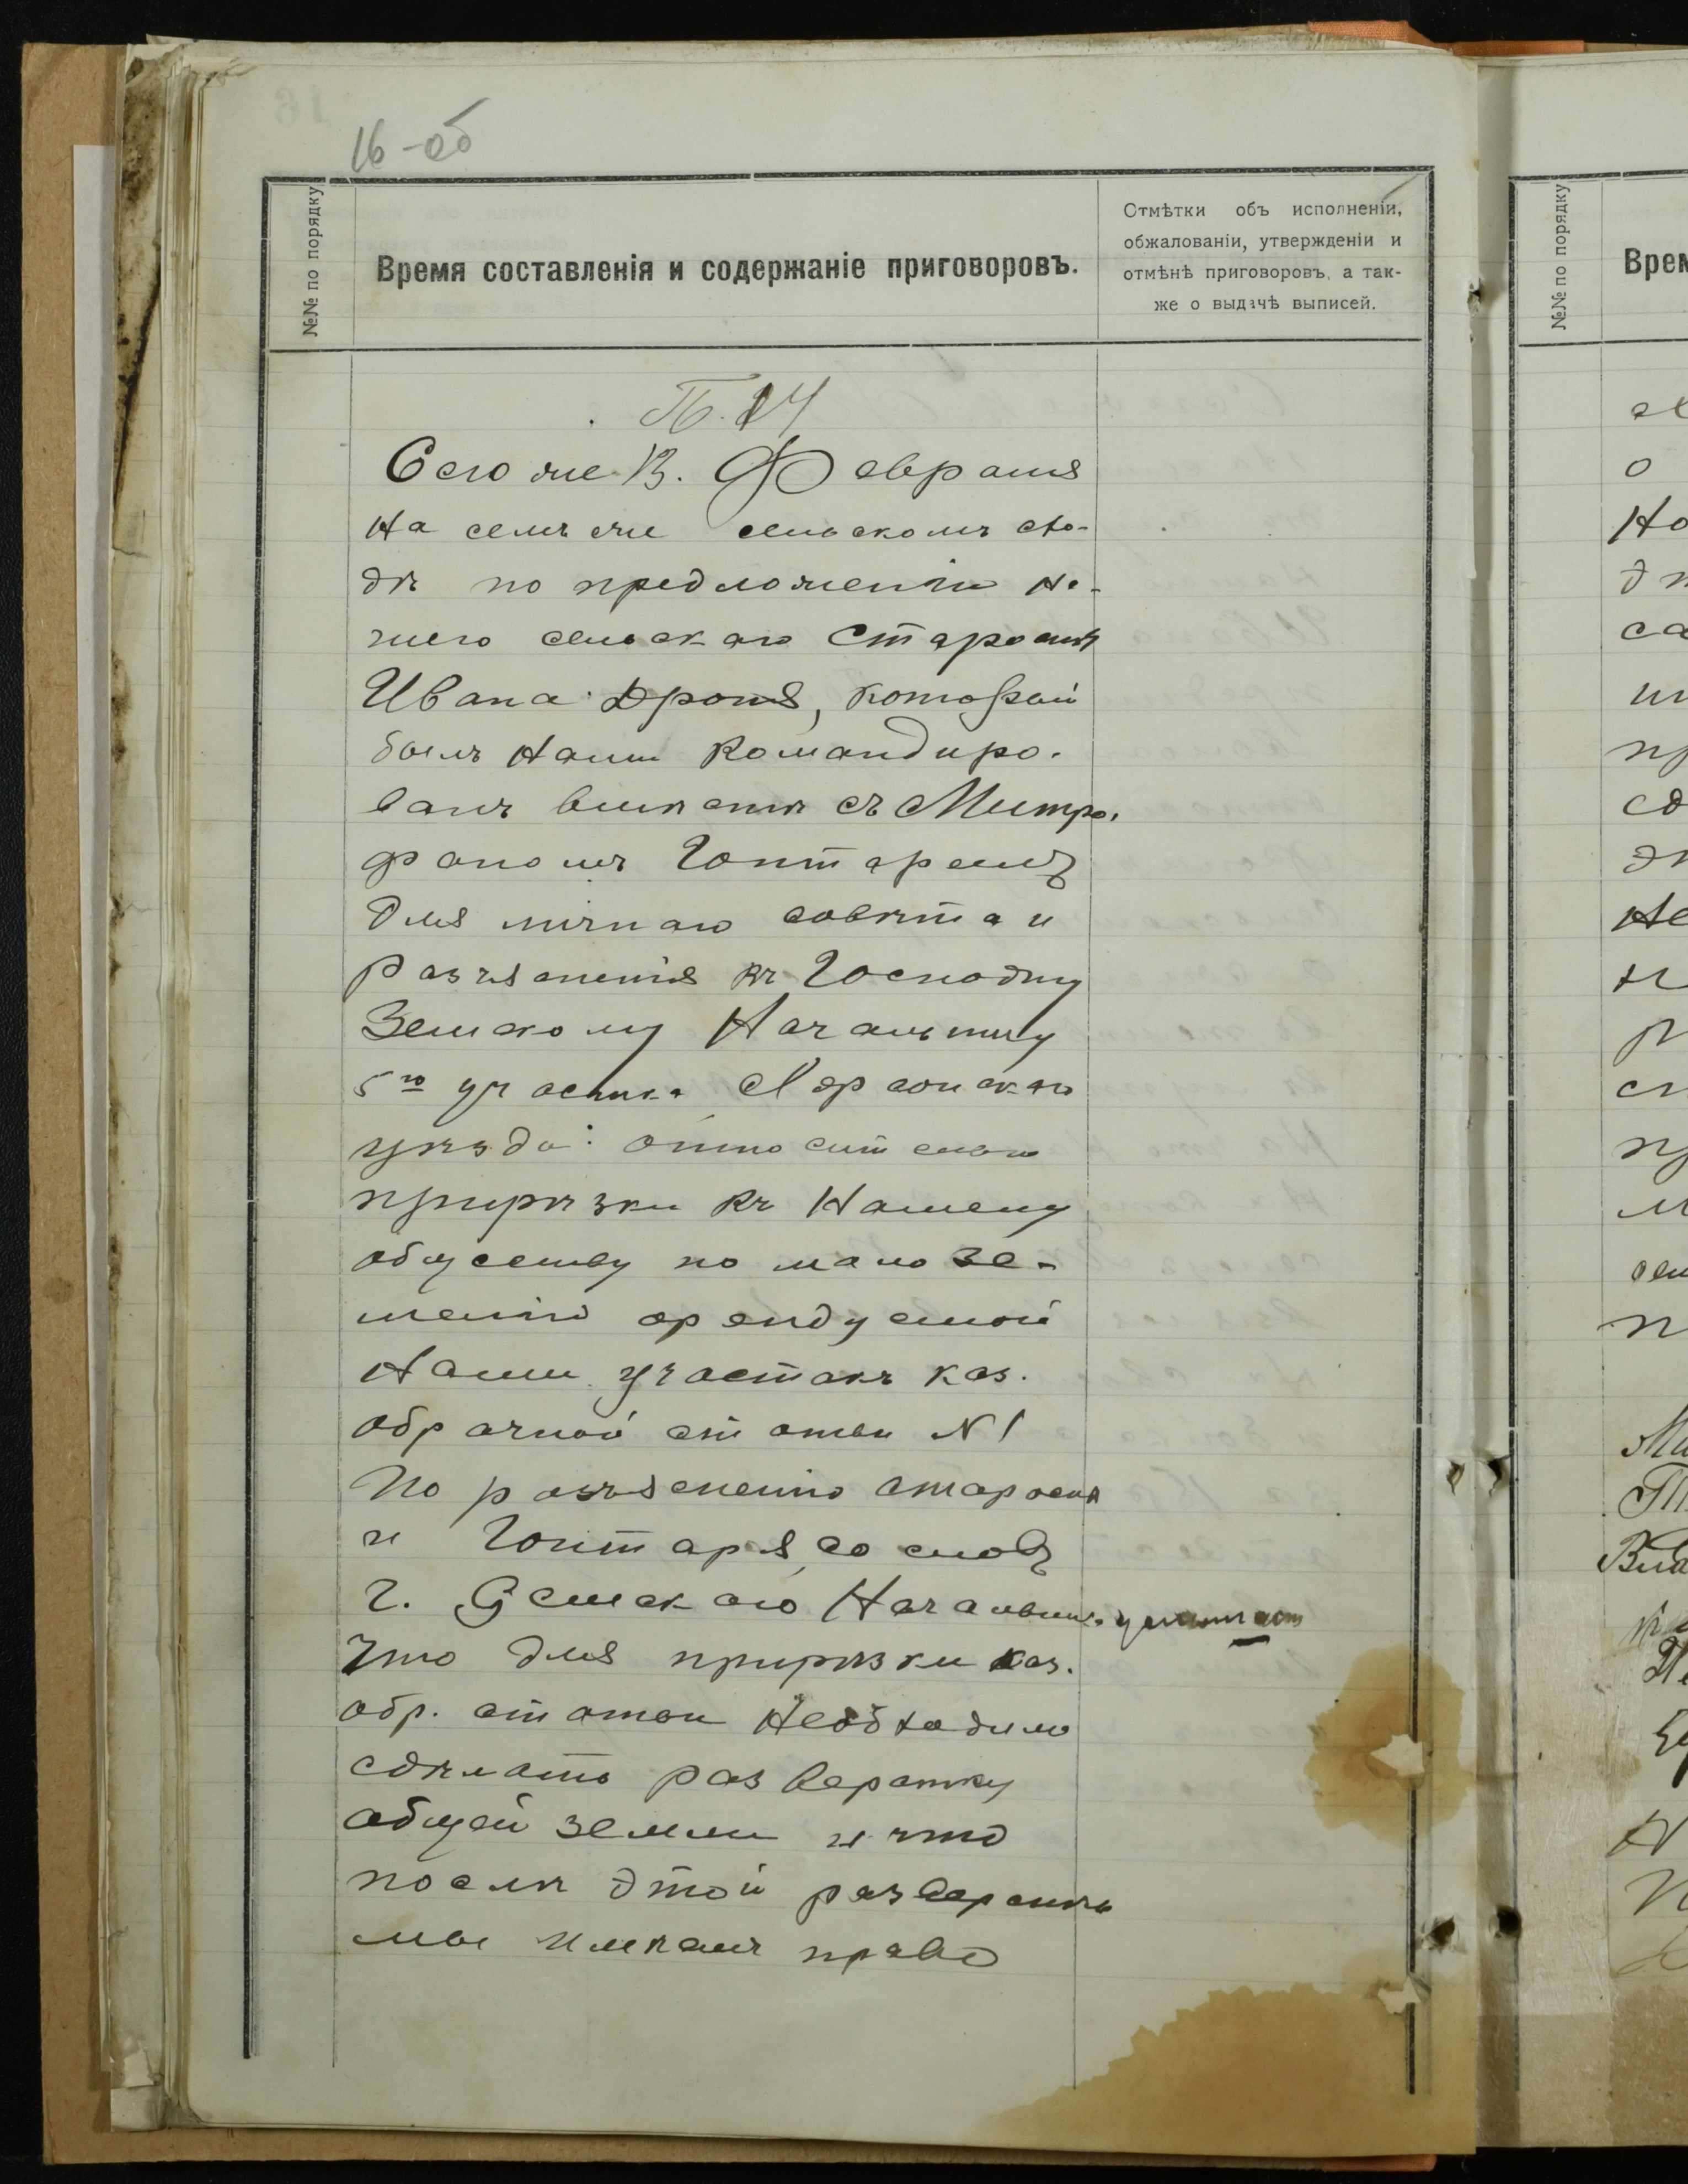 16-об
№№ по порядку
Время составленія и содержаніе приговоровъ.
Отмѣтки объ исполненіи,
обжалованіи, утвержденіи и
отмѣнѣ приговоровъ, а так-
же о выдачѣ выписей.
Сего же 13. Февраля
На семъ же сельскомъ схо-
дѣ по предложенію На-
шего сельскаго Старосты
Ивана Дроня, который
былъ Нами Командиро-
ванъ вмѣстѣ съ Митро-
фаномъ Гонтаремъ
для личнаго совѣта и
Разъясненія къ Господину
Земскому Начальнику
5го участка Херсонскаго
уѣзда: относительно
прирѣзки къ Нашему
обществу по малозе-
мелію арендуемой
Нами участокъ каз.
оброчной статьи N 1
По разъясненію старосты
и Гонтаря со словъ
г. Земскаго Начальника
Что для прирѣзки каз.
обр. статьи Необходимо
сдѣлать разверстку
общей земли и что
послѣ этой разверстки
мы имѣемъ право
№№ по порядку
Врем